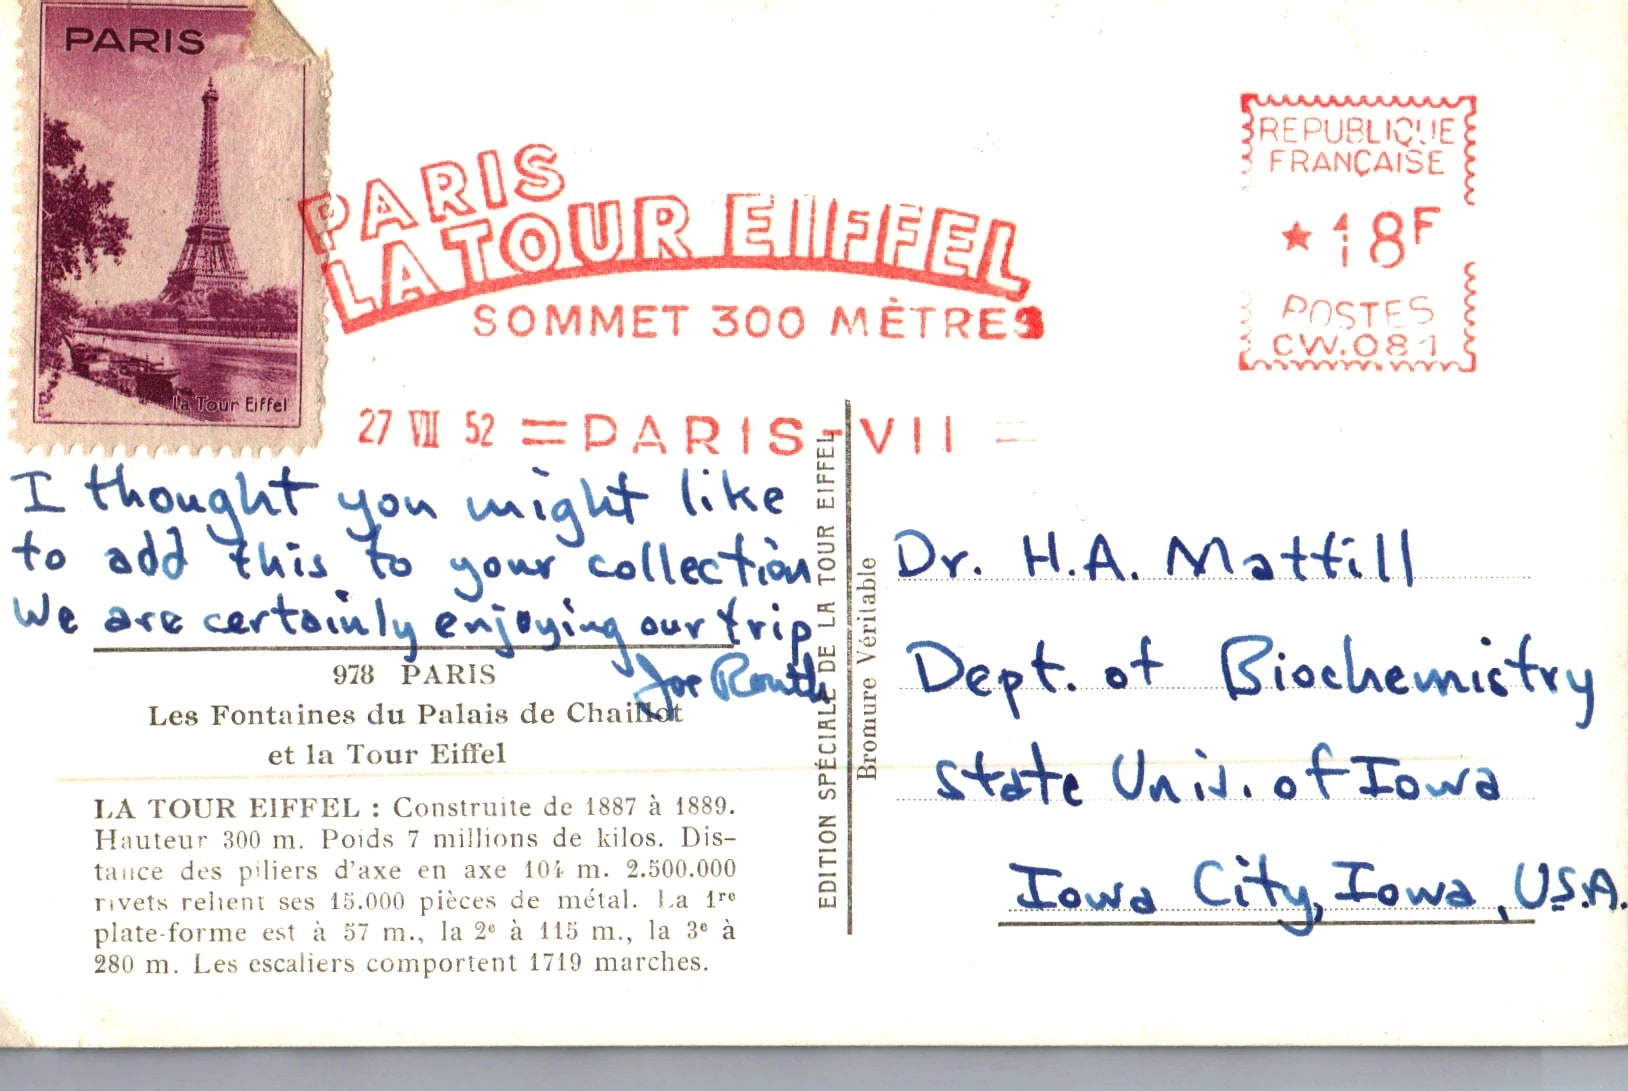 PARIS
la Tour Eiffel
PARIS
LA TOUR EIFFEL
SOMMET 300 MÈTRES
REPUBLIQUE
FRANÇAISE
★ 18F
POSTES
CW.081
27 VII 52 = PARIS - VII =
I thought you might like
to add this to your collection
We are certainly enjoying our trip
Joe Routh
978 PARIS
Les Fontaines du Palais de Chaillot
et la Tour Eiffel
LA TOUR EIFFEL : Construite de 1887 à 1889.
Hauteur 300 m. Poids 7 millions de kilos. Dis-
tance des piliers d'axe en axe 104 m. 2.500.000
rivets relient ses 15.000 pièces de métal. La 1re
plate-forme est à 57 m., la 2e à 115 m., la 3e à
280 m. Les escaliers comportent 1719 marches.
EDITION SPÉCIALE DE LA TOUR EIFFEL
Bromure Véritable
Dr. H.A. Mattill
Dept. of Biochemistry
State Univ. of Iowa
Iowa City, Iowa, U.S.A.